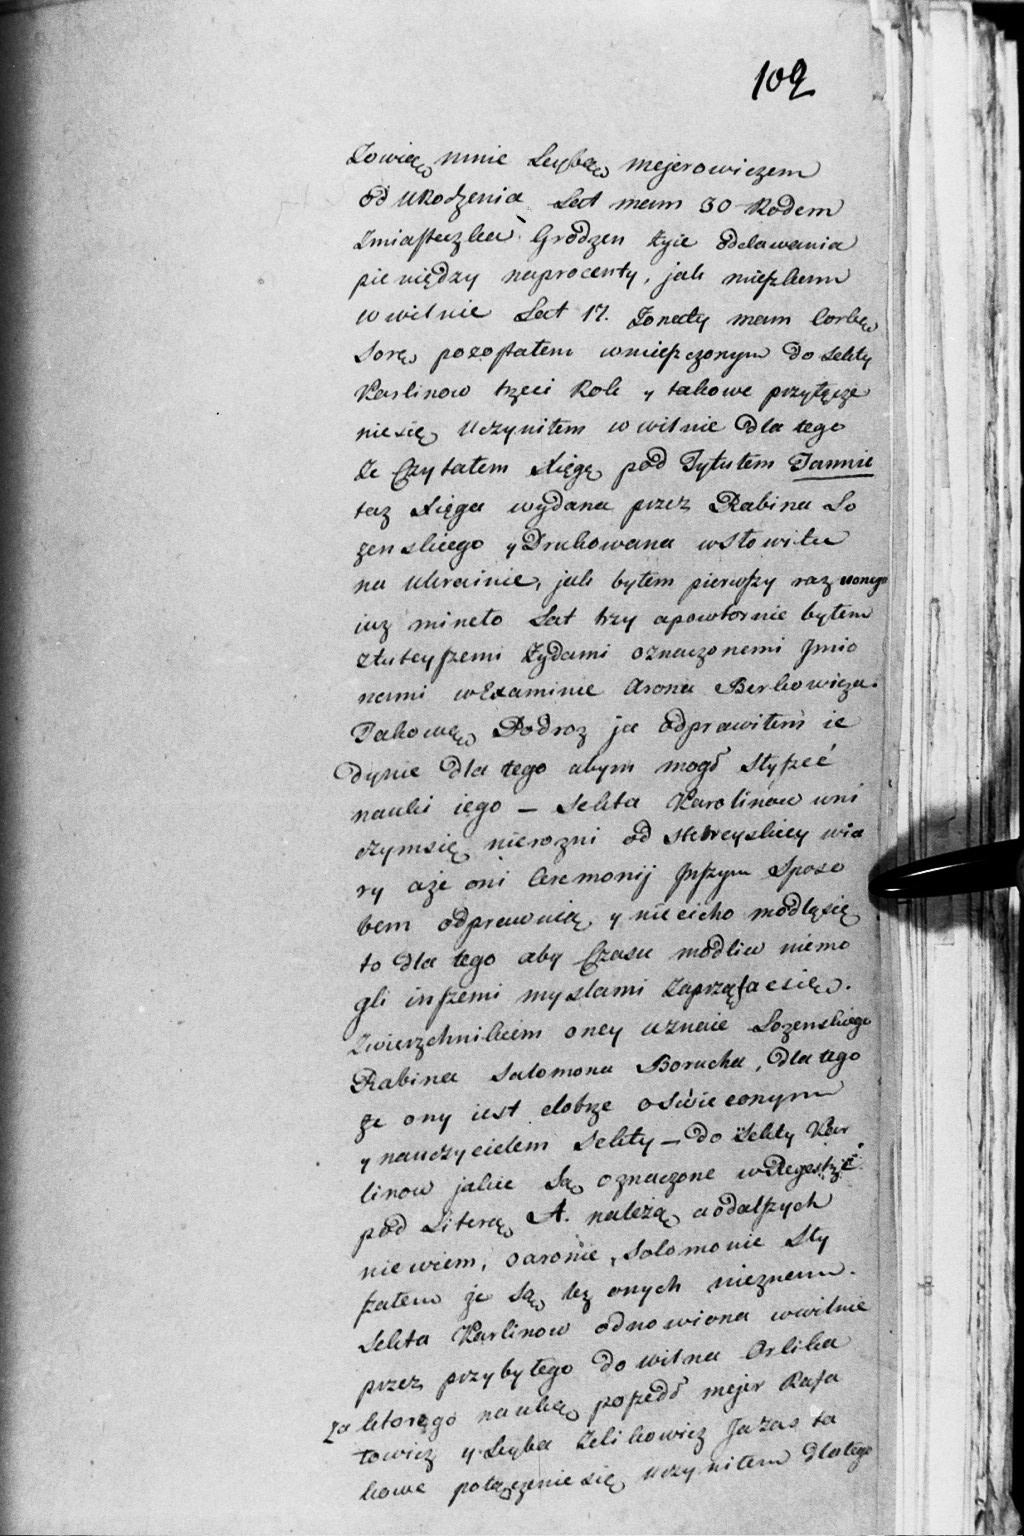 102
Zowią mnie Leybą mejerowiczem
od urodzenia Lat mam 30 Rodem
zmiasteczka Grodzen żyie oddawania
pieniędzy naprocenty, jak mieszkam
wwilnie Lat 17. Zonaty mam Corkę
Sorę pozostałem umieszczonym do sekty
Karlinow trzeci Rok y takowe przyłącze
niesię uczyniłem wwilnie dla tego
że Czytałem xięgę pod Tytułem Tannie
taz xięga wydana przez Rabina Lo
zenskiego y Drukowana wSłowitu
na ukrainie, jak byłem pierwszy raz uonego
iuz mineło Lat trzy apowtornie byłem
ztuteyszemi Zydami oznaczonemi Jmio
nami wExaminie Arona Berkowicza.
Takową Podroz ja odprawiłem ie
dynie dla tego abym mogł Słyszeć
nauki iego — Sekta Karolinow wni
czymsię nierozni od Hebreyskiey wia
ry aże oni Ceremonij Jnszym Sposo
bem odprawuią y nie cicho modląsię
to dla tego aby Czasu modliw niemo
gli inszemi myslami zaprzątacsię.
Zwierzchnikiem oney uznaie Lozenskiego
Rabina Salomona Borucha, dla tego
że ony iest dobrze oświeconym
y nauczycielem Sekty — do Sekty Kar
linow jakie Są oznaczone wRegestrze
pod Literą A. należą aodalszych
niewiem, oaronie, Solomonie Sły
szałem że Są lez onych nieznam.
Sekta Karlinow odnowiona wwilnie
przez przybyłego do wilna Orlika
za ktorego nauką poszedł mejer Rafa
łowicz y Leyba Zelikowicz Jazas ta
kowe połączeniesię uczyniłem dlatego